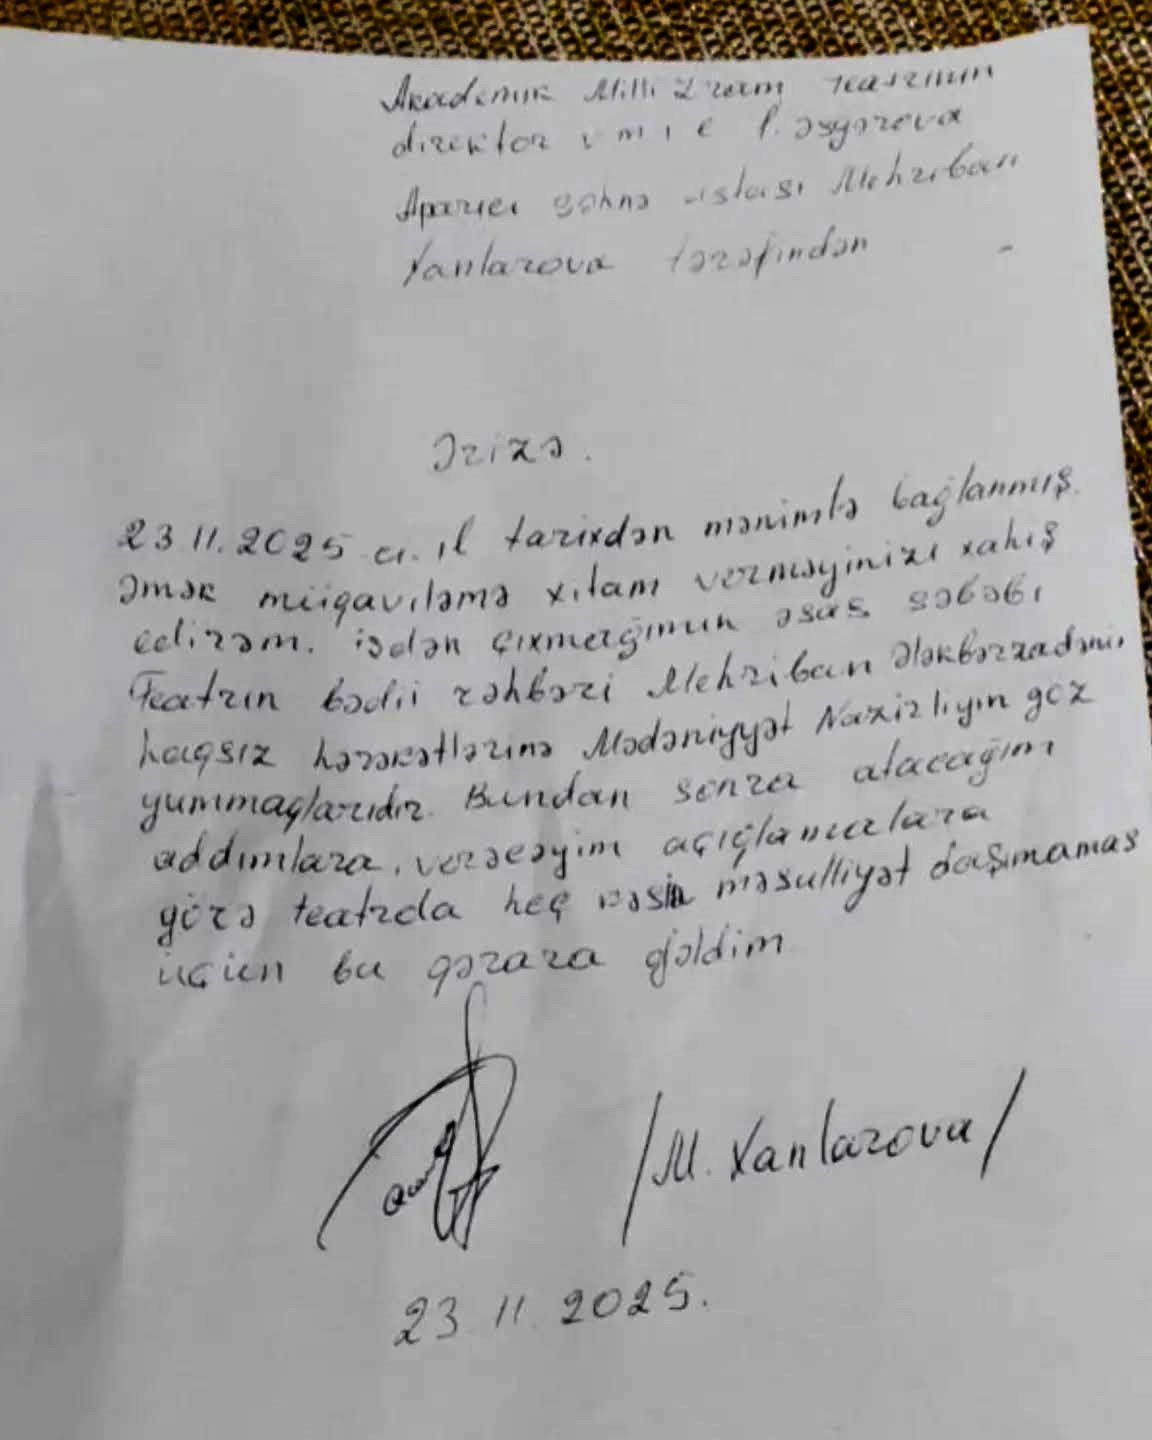 Akademik Milli Dram teatrının
direktor v m i e P. Əsgərova
Aparıcı səhnə ustası Mehriban
Xanlarova tərəfindən
Ərizə.
23.11.2025-ci il tarixdən mənimlə bağlanmış
əmək müqaviləmə xitam verməyinizi xahiş
edirəm. işdən çıxmağımın əsas səbəbi
Teatrın bədii rəhbəri Mehriban Ələkbərzadənin
haqsız hərəkətlərinə Mədəniyyət Nazirliyin göz
yummaqlarıdır. Bundan sonra atacağım
addımlara, verəcəyim açıqlamalara
görə teatrda heç kəsin məsulliyət daşımamas
üçün bu qərara gəldim
/M. Xanlarova/
23.11.2025.